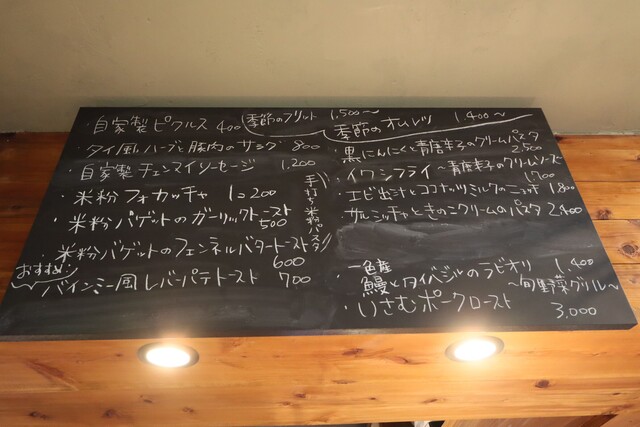 ・自家製ピクルス 400
・タイ風ハーブと豚肉のサラダ 800
・自家製チェンマイソーセージ 1,200
・米粉フォカッチャ 1コ200
・米粉バゲットのガーリックトースト
500
・米粉バゲットのフェンネルバタートースト
600
おすすめ!
バインミー風レバーパテトースト 700
季節のフリット 1,500〜
季節のオムレツ 1,400〜
手打ち米粉パスタ
・黒にんにくと青唐辛子のクリームパスタ
2,500
・イワシフライ〜青唐辛子のクリームソース〜
1,700
・エビ出汁とココナッツミルクのニョッキ 1,800
・サルシッチャときのこクリームのパスタ 2,400
・一色産
鰻とタイバジルのラビオリ 1,400
・いさむポークロースト 〜旬野菜グリル〜
3,000